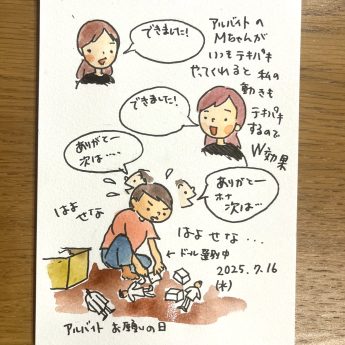 できました!
アルバイトの
Mちゃんが
いつもテキパキ
やってくれると 私の
動きも
テキパキ
するので
W効果
できました!
ありがとー
次は‥‥
ありがとー
ホナ
次は‥
はよ
せな
はよ せな・・・
←ドール整列中
2025.7.16
(水)
アルバイト お願いの日